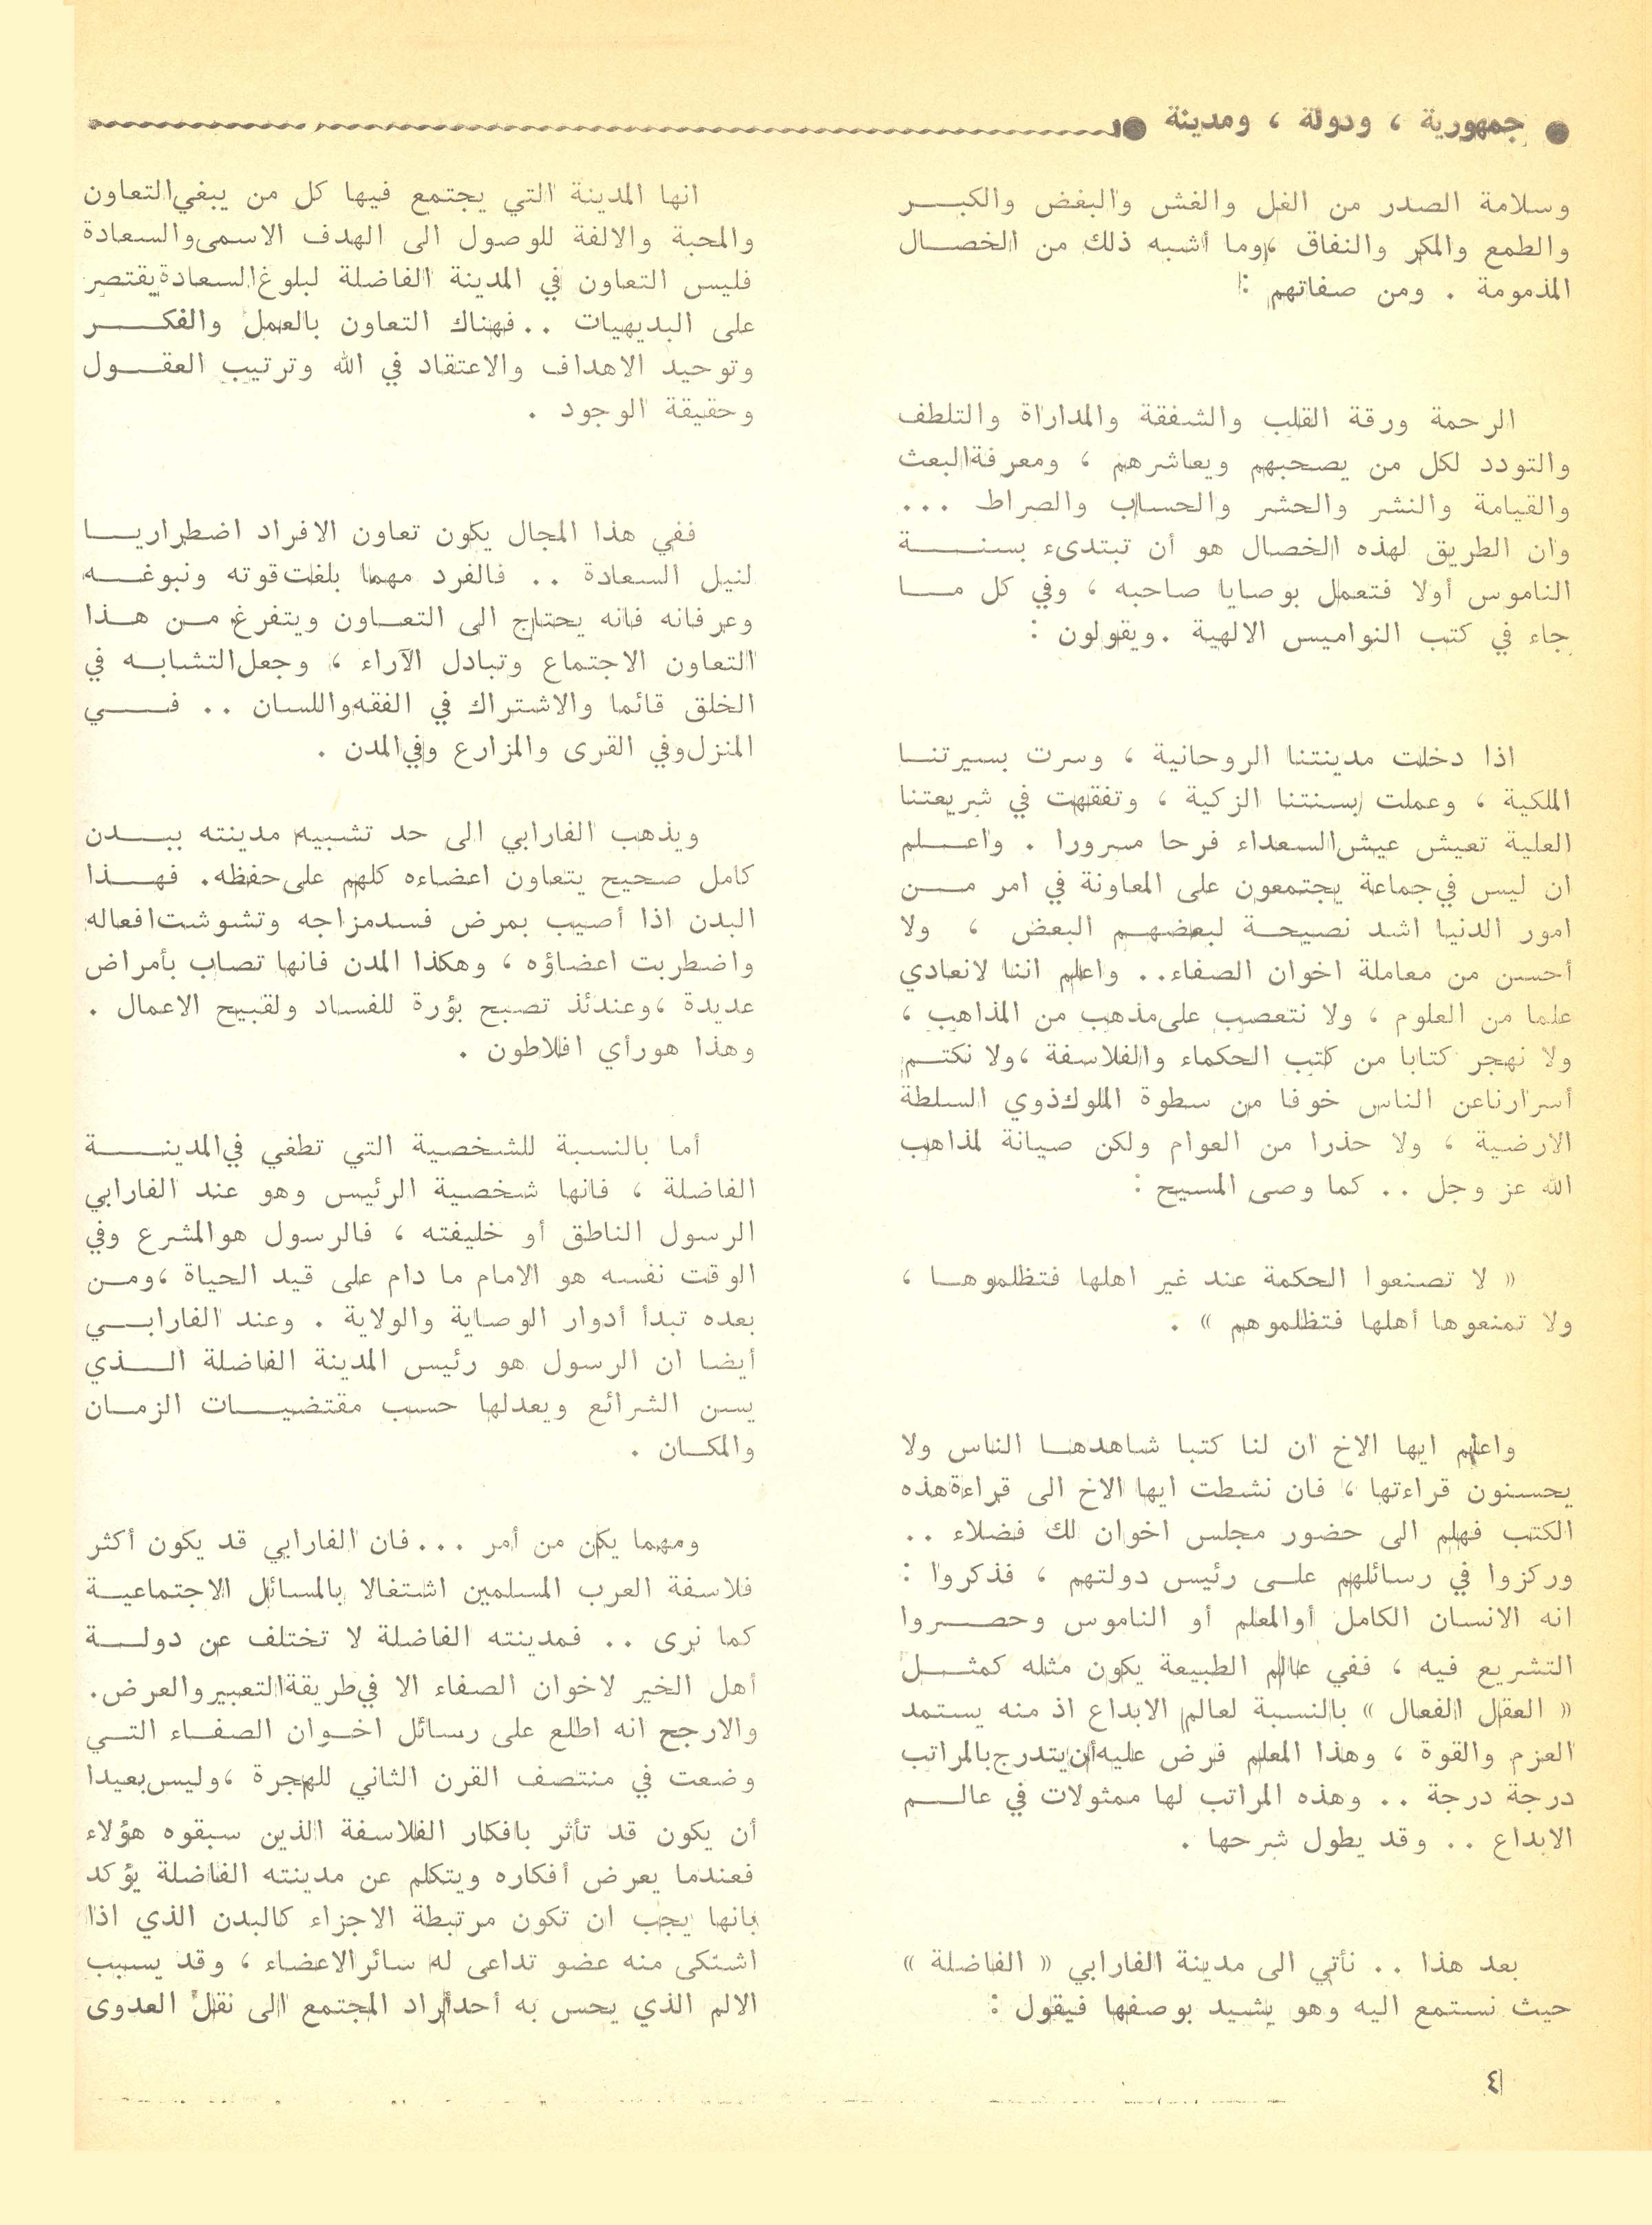 ● جمهورية ، ودولة ، ومدينة ●
وسلامة الصدر من الغل والغش والبغض والكبر
والطمع والمكر والنفاق ،وما أشبه ذلك من الخصال
المذمومة . ومن صفاتهم :
الرحمة ورقة القلب والشفقة والمداراة والتلطف
والتودد لكل من يصحبهم ويعاشرهم ، ومعرفة البعث
والقيامة والنشر والحشر والحساب والصراط ...
وان الطريق لهذه الخصال هو أن تبتدىء بسنة
الناموس أولا فتعمل بوصايا صاحبه ، وفي كل ما
جاء في كتب النواميس الالهية .ويقولون :
اذا دخلت مدينتنا الروحانية ، وسرت بسيرتنا
الملكية ، وعملت بسنتنا الزكية ، وتفقهت في شريعتنا
العلية تعيش عيش السعداء فرحا مسرورا . واعلم
ان ليس في جماعة يجتمعون على المعاونة في امر من
امور الدنيا اشد نصيحة لبعضهم البعض ، ولا
أحسن من معاملة اخوان الصفاء.. واعلم اننا لانعادي
علما من العلوم ، ولا نتعصب على مذهب من المذاهب ،
ولا نهجر كتابا من كتب الحكماء والفلاسفة ،ولا نكتم
أسرارنا عن الناس خوفا من سطوة الملوك ذوي السلطة
الارضية ، ولا حذرا من العوام ولكن صيانة لمذاهب
الله عز وجل .. كما وصى المسيح :
« لا تصنعوا الحكمة عند غير اهلها فتظلموها ،
ولا تمنعوها أهلها فتظلموهم » .
واعلم ايها الاخ ان لنا كتبا شاهدها الناس ولا
يحسنون قراءتها ، فان نشطت ايها الاخ الى قراءة هذه
الكتب فهلم الى حضور مجلس اخوان لك فضلاء ..
وركزوا في رسائلهم على رئيس دولتهم ، فذكروا :
انه الانسان الكامل أو المعلم أو الناموس وحصروا
التشريع فيه ، ففي عالم الطبيعة يكون مثله كمثل
« العقل الفعال » بالنسبة لعالم الابداع اذ منه يستمد
العزم والقوة ، وهذا المعلم فرض عليه أن يتدرج بالمراتب
درجة درجة .. وهذه المراتب لها ممثولات في عالم
الابداع .. وقد يطول شرحها .
بعد هذا .. نأتي الى مدينة الفارابي « الفاضلة »
حيث نستمع اليه وهو يشيد بوصفها فيقول :
انها المدينة التي يجتمع فيها كل من يبغي التعاون
والمحبة والالفة للوصول الى الهدف الاسمى والسعادة
فليس التعاون في المدينة الفاضلة لبلوغ السعادة يقتصر
على البديهيات ..فهناك التعاون بالعمل والفكر
وتوحيد الاهداف والاعتقاد في الله وترتيب العقول
وحقيقة الوجود .
ففي هذا المجال يكون تعاون الافراد اضطراريا
لنيل السعادة .. فالفرد مهما بلغت قوته ونبوغه
وعرفانه فانه يحتاج الى التعاون ويتفرغ من هذا
التعاون الاجتماع وتبادل الآراء ، وجعل التشابه في
الخلق قائما والاشتراك في الفقه واللسان .. في
المنزل وفي القرى والمزارع وفي المدن .
ويذهب الفارابي الى حد تشبيه مدينته ببدن
كامل صحيح يتعاون اعضاءه كلهم على حفظه. فهذا
البدن اذا أصيب بمرض فسد مزاجه وتشوشت افعاله
واضطربت اعضاؤه ، وهكذا المدن فانها تصاب بأمراض
عديدة ،وعندئذ تصبح بؤرة للفساد ولقبيح الاعمال .
وهذا هو رأي افلاطون .
أما بالنسبة للشخصية التي تطغي في المدينة
الفاضلة ، فانها شخصية الرئيس وهو عند الفارابي
الرسول الناطق أو خليفته ، فالرسول هو المشرع وفي
الوقت نفسه هو الامام ما دام على قيد الحياة ،ومن
بعده تبدأ أدوار الوصاية والولاية . وعند الفارابي
أيضا ان الرسول هو رئيس المدينة الفاضلة الذي
يسن الشرائع ويعدلها حسب مقتضيات الزمان
والمكان .
ومهما يكن من أمر ...فان الفارابي قد يكون أكثر
فلاسفة العرب المسلمين اشتغالا بالمسائل الاجتماعية
كما نرى .. فمدينته الفاضلة لا تختلف عن دولة
أهل الخير لاخوان الصفاء الا في طريقة التعبير والعرض.
والارجح انه اطلع على رسائل اخوان الصفاء التي
وضعت في منتصف القرن الثاني للهجرة ،وليس بعيدا
أن يكون قد تأثر بافكار الفلاسفة الذين سبقوه هؤلاء
فعندما يعرض أفكاره ويتكلم عن مدينته الفاضلة يؤكد
بانها يجب ان تكون مرتبطة الاجزاء كالبدن الذي اذا
اشتكى منه عضو تداعى له سائر الاعضاء ، وقد يسبب
الالم الذي يحس به أحد أفراد المجتمع الى نقل العدوى
٤